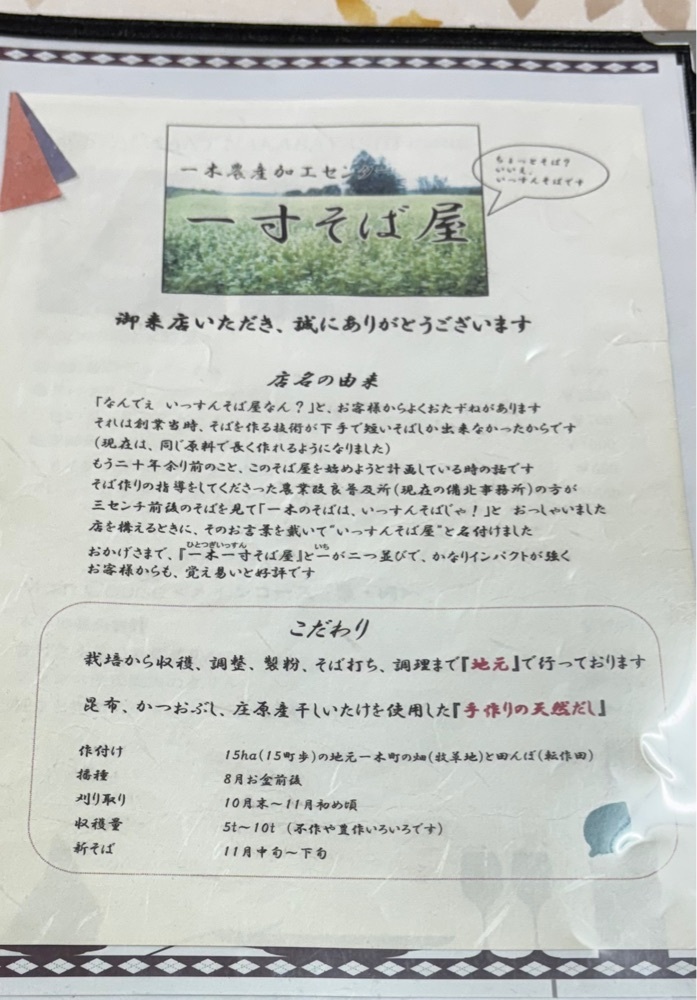 一木農産加工センター
一寸そば屋
ちょっとそば?
いいえ、
いっすんそばです
御来店いただき、誠にありがとうございます
店名の由来
「なんでぇ いっすんそば屋なん?」と、お客様からよくおたずねがあります
それは創業当時、そばを作る技術が下手で短いそばしか出来なかったからです
(現在は、同じ原料で長く作れるようになりました)
もう二十年余り前のこと、このそば屋を始めようと計画している時の話です
そば作りの指導をしてくださった農業改良普及所(現在の備北事務所)の方が
三センチ前後のそばを見て「一木のそばは、いっすんそばじゃ!」と おっしゃいました
店を構えるときに、そのお言葉を戴いて"いっすんそば屋"と名付けました
ひとつぎいっすん いち
おかげさまで、『一木一寸そば屋』と一が二つ並びで、かなりインパクトが強く
お客様からも、覚え易いと好評です
こだわり
栽培から収穫、調整、製粉、そば打ち、調理まで『地元』で行っております
昆布、かつおぶし、庄原産干しいたけを使用した『手作りの天然だし』
作付け 15ha(15町歩)の地元一木町の畑(牧草地)と田んぼ(転作田)
播種 8月お盆前後
刈り取り 10月末〜11月初め頃
収穫量 5t〜10t (不作や豊作いろいろです)
新そば 11月中旬〜下旬